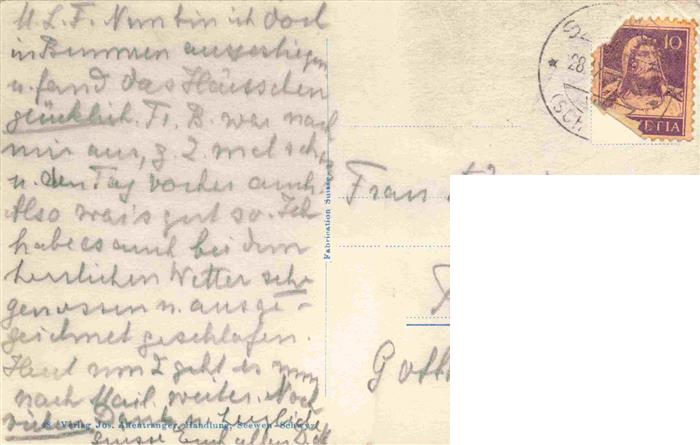 M. L. F. Nun bin ich doch
in Brunnen ausgestiegen
u. fand das Häuschen
glücklich. Fr. B. war nach
mir aus, z. 2. mal schon
u. den Tag vorher auch.
Also war's gut so. Ich
habe es auch bei dem
herrlichen Wetter sehr
genossen u. ausge-
zeichnet geschlafen.
Heut um 2 geht es nun
nach Mail. weiter. Noch
vielen Dank u. herzlich
Grüsse Euch allen
Verlag Jos. Handlung, Seewen-Schwyz
Fabrication Suisse
Frau
Goth
28.
(SCH
10
ETIA